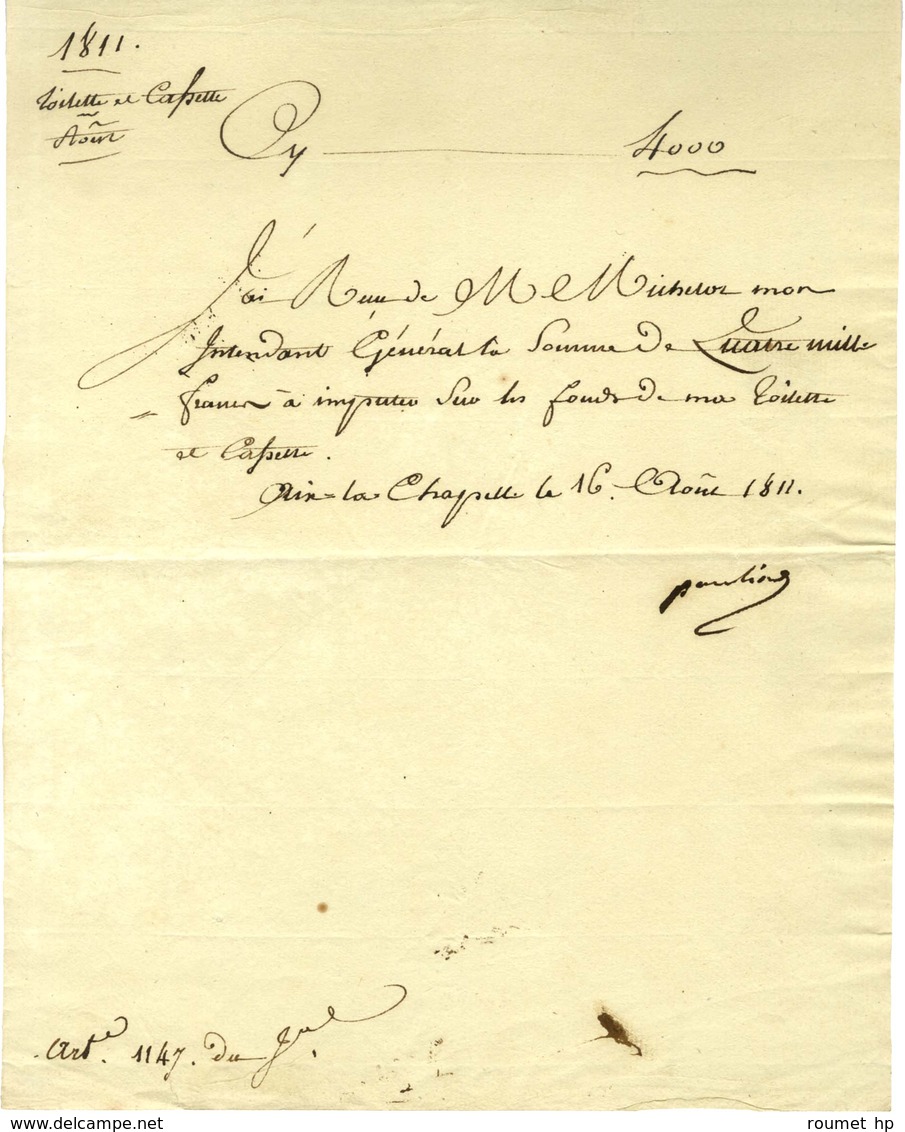 1811.
Toilette et Cassette
Août
Qy 4000
J'ai Reçu de Mr Michelot mon
Intendant Général la Somme de Quatre mille
francs à imputer sur les fonds de ma Toilette
et Cassette.
Aix=la Chapelle le 16. Août 1811.
pauline
Arte. 1147. du Jnal.
delcampe.net
roumet hp